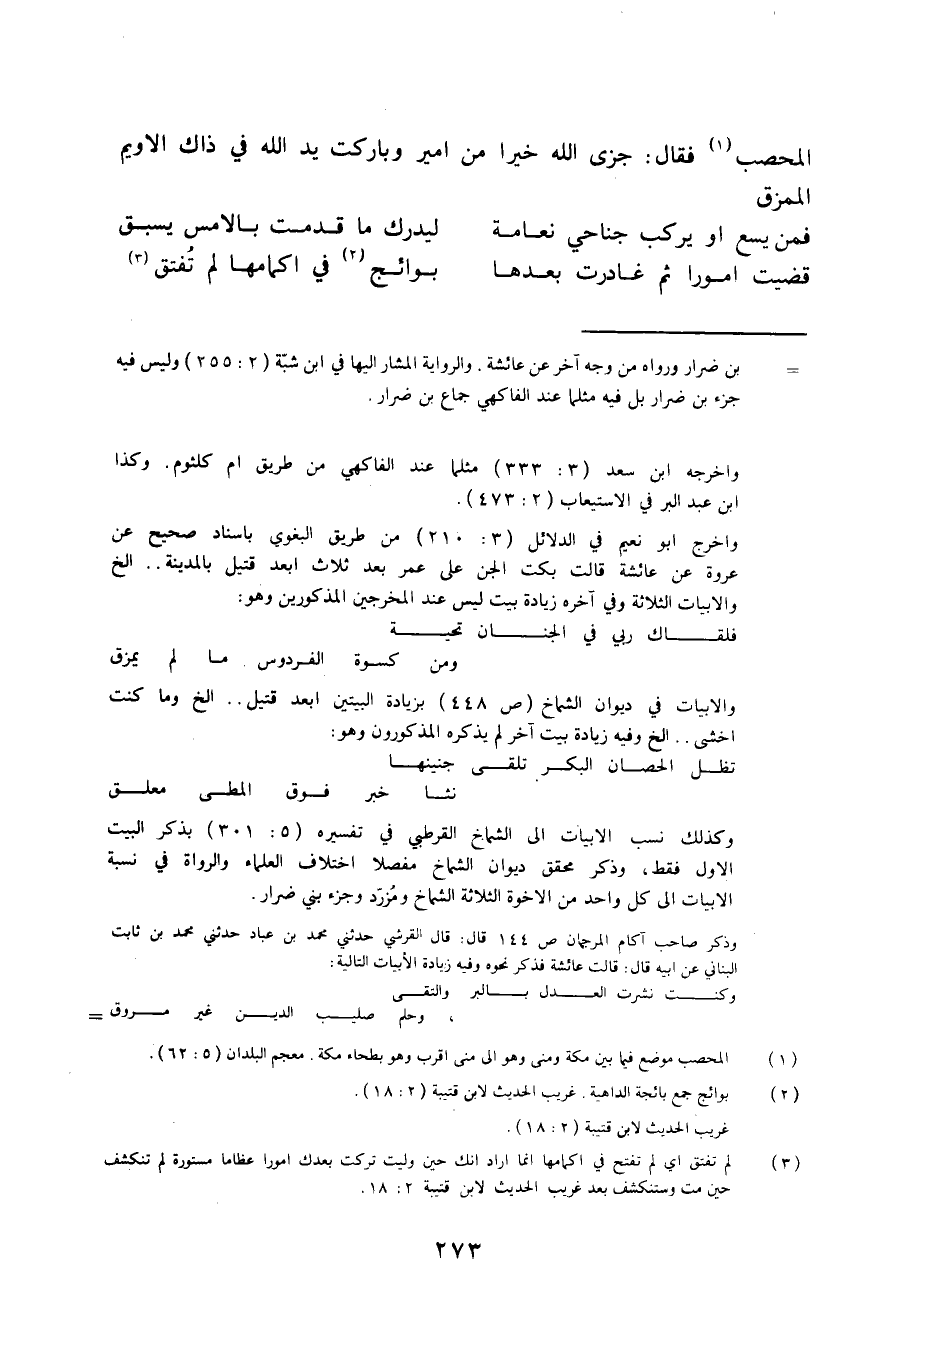 المحصب(١) فقال: جزى الله خيرا من امير وباركت يد الله في ذاك الاويم
الممزق
فمن يسع او يركب جناحي نعامة ليدرك ما قدمت بالامس يسبق
قضيت امورا ثم غادرت بعدها بوائج(٢) في اكمامها لم تُفتق(٣)
= بن ضرار ورواه من وجه آخر عن عائشة. والرواية المشار اليها في ابن شبّة (٢: ٢٥٥) وليس فيه
جزء بن ضرار بل فيه مثلما عند الفاكهي جماع بن ضرار.
واخرجه ابن سعد (٣: ٣٣٣) مثلما عند الفاكهي من طريق ام كلثوم. وكذا
ابن عبد البر في الاستيعاب (٢: ٤٧٣).
واخرج ابو نعيم في الدلائل (٣: ٢١٠) من طريق البغوي باسناد صحيح عن
عروة عن عائشة قالت بكت الجن على عمر بعد ثلاث ابعد قتيل بالمدينة.. الخ
والابيات الثلاثة وفي آخره زيادة بيت ليس عند المخرجين المذكورين وهو:
فلقاك ربي في الجنان تحية
ومن كسوة الفردوس ما لم يمزق
والابيات في ديوان الشماخ (ص ٤٤٨) بزيادة البيتين ابعد قتيل.. الخ وما كنت
اخشى.. الخ وفيه زيادة بيت آخر لم يذكره المذكورون وهو:
تظل الحصان البكر تلقى جنينها
نثا خبر فوق المطى معلق
وكذلك نسب الابيات الى الشماخ القرطبي في تفسيره (٥: ٣٠١) بذكر البيت
الاول فقط، وذكر محقق ديوان الشماخ مفصلا اختلاف العلماء والرواة في نسبة
الابيات الى كل واحد من الاخوة الثلاثة الشماخ ومُزرّد وجزء بني ضرار.
وذكر صاحب آكام المرجان ص ١٤٤ قال: قال القرشي حدثني محمد بن عباد حدثني محمد بن ثابت
البناني عن ابيه قال: قالت عائشة فذكر نحوه وفيه زيادة الأبيات التالية:
وكنت نشرت العدل بالبر والتقى
، وحلم صليب الدين غير مروق =
(١) المحصب موضع فيما بين مكة ومنى وهو الى منى اقرب وهو بطحاء مكة. معجم البلدان (٥: ٦٢).
(٢) بوائج جمع بائجة الداهية. غريب الحديث لابن قتيبة (٢: ١٨).
غريب الحديث لابن قتيبة (٢: ١٨).
(٣) لم تفتق اي لم تفتح في اكمامها انما اراد انك حين وليت تركت بعدك امورا عظاما مستورة لم تنكشف
حين مت وستنكشف بعد غريب الحديث لابن قتيبة ٢: ١٨.
٢٧٣